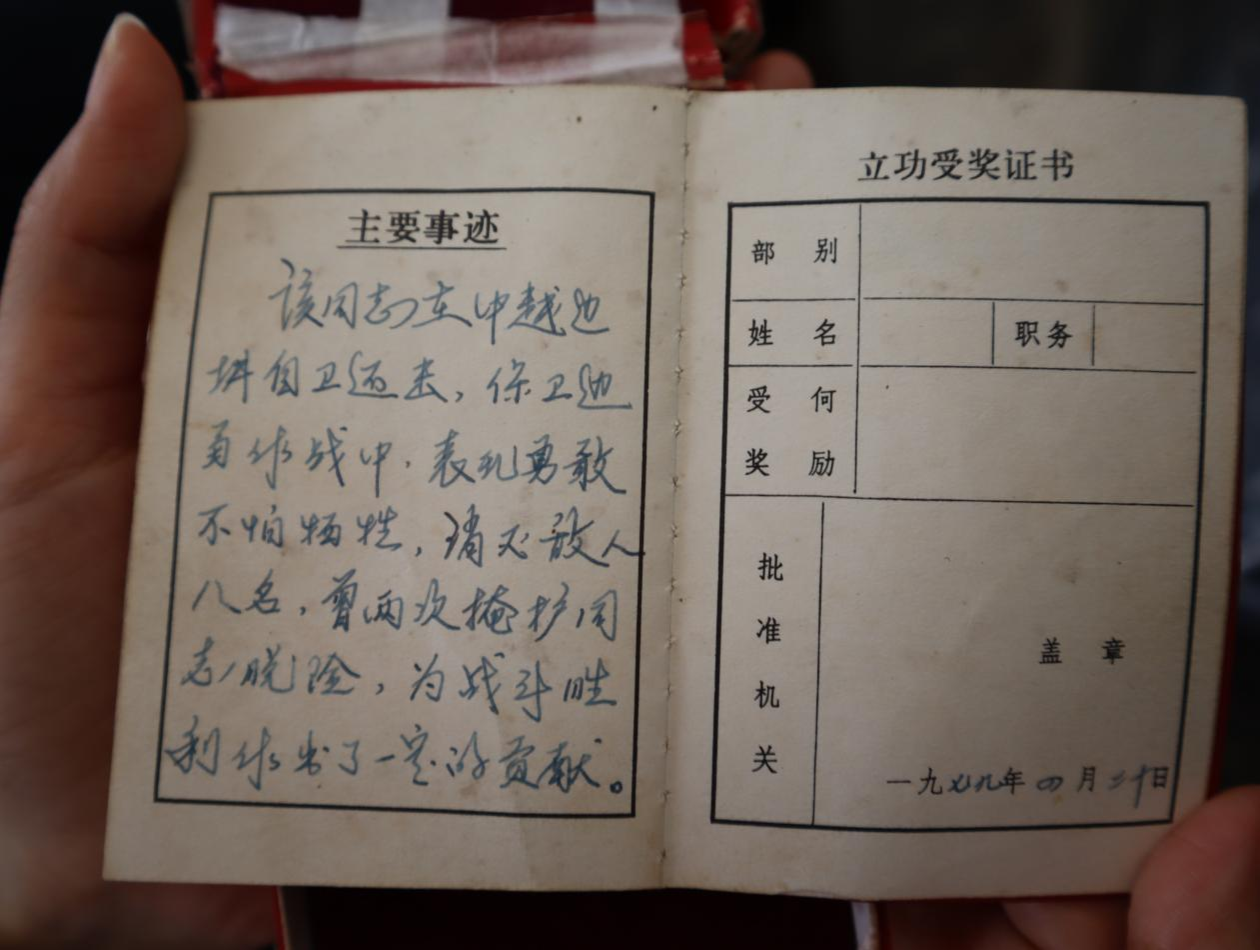 主要事迹
该同志在中越边
境自卫还击,保卫边
疆作战中,表现勇敢
不怕牺牲,消灭敌人
八名,曾两次掩护同
志脱险,为战斗胜
利作出了一定的贡献。
立功受奖证书
部别
姓名 职务
受何
奖励
批准机关
盖章
一九七九年四月二十日